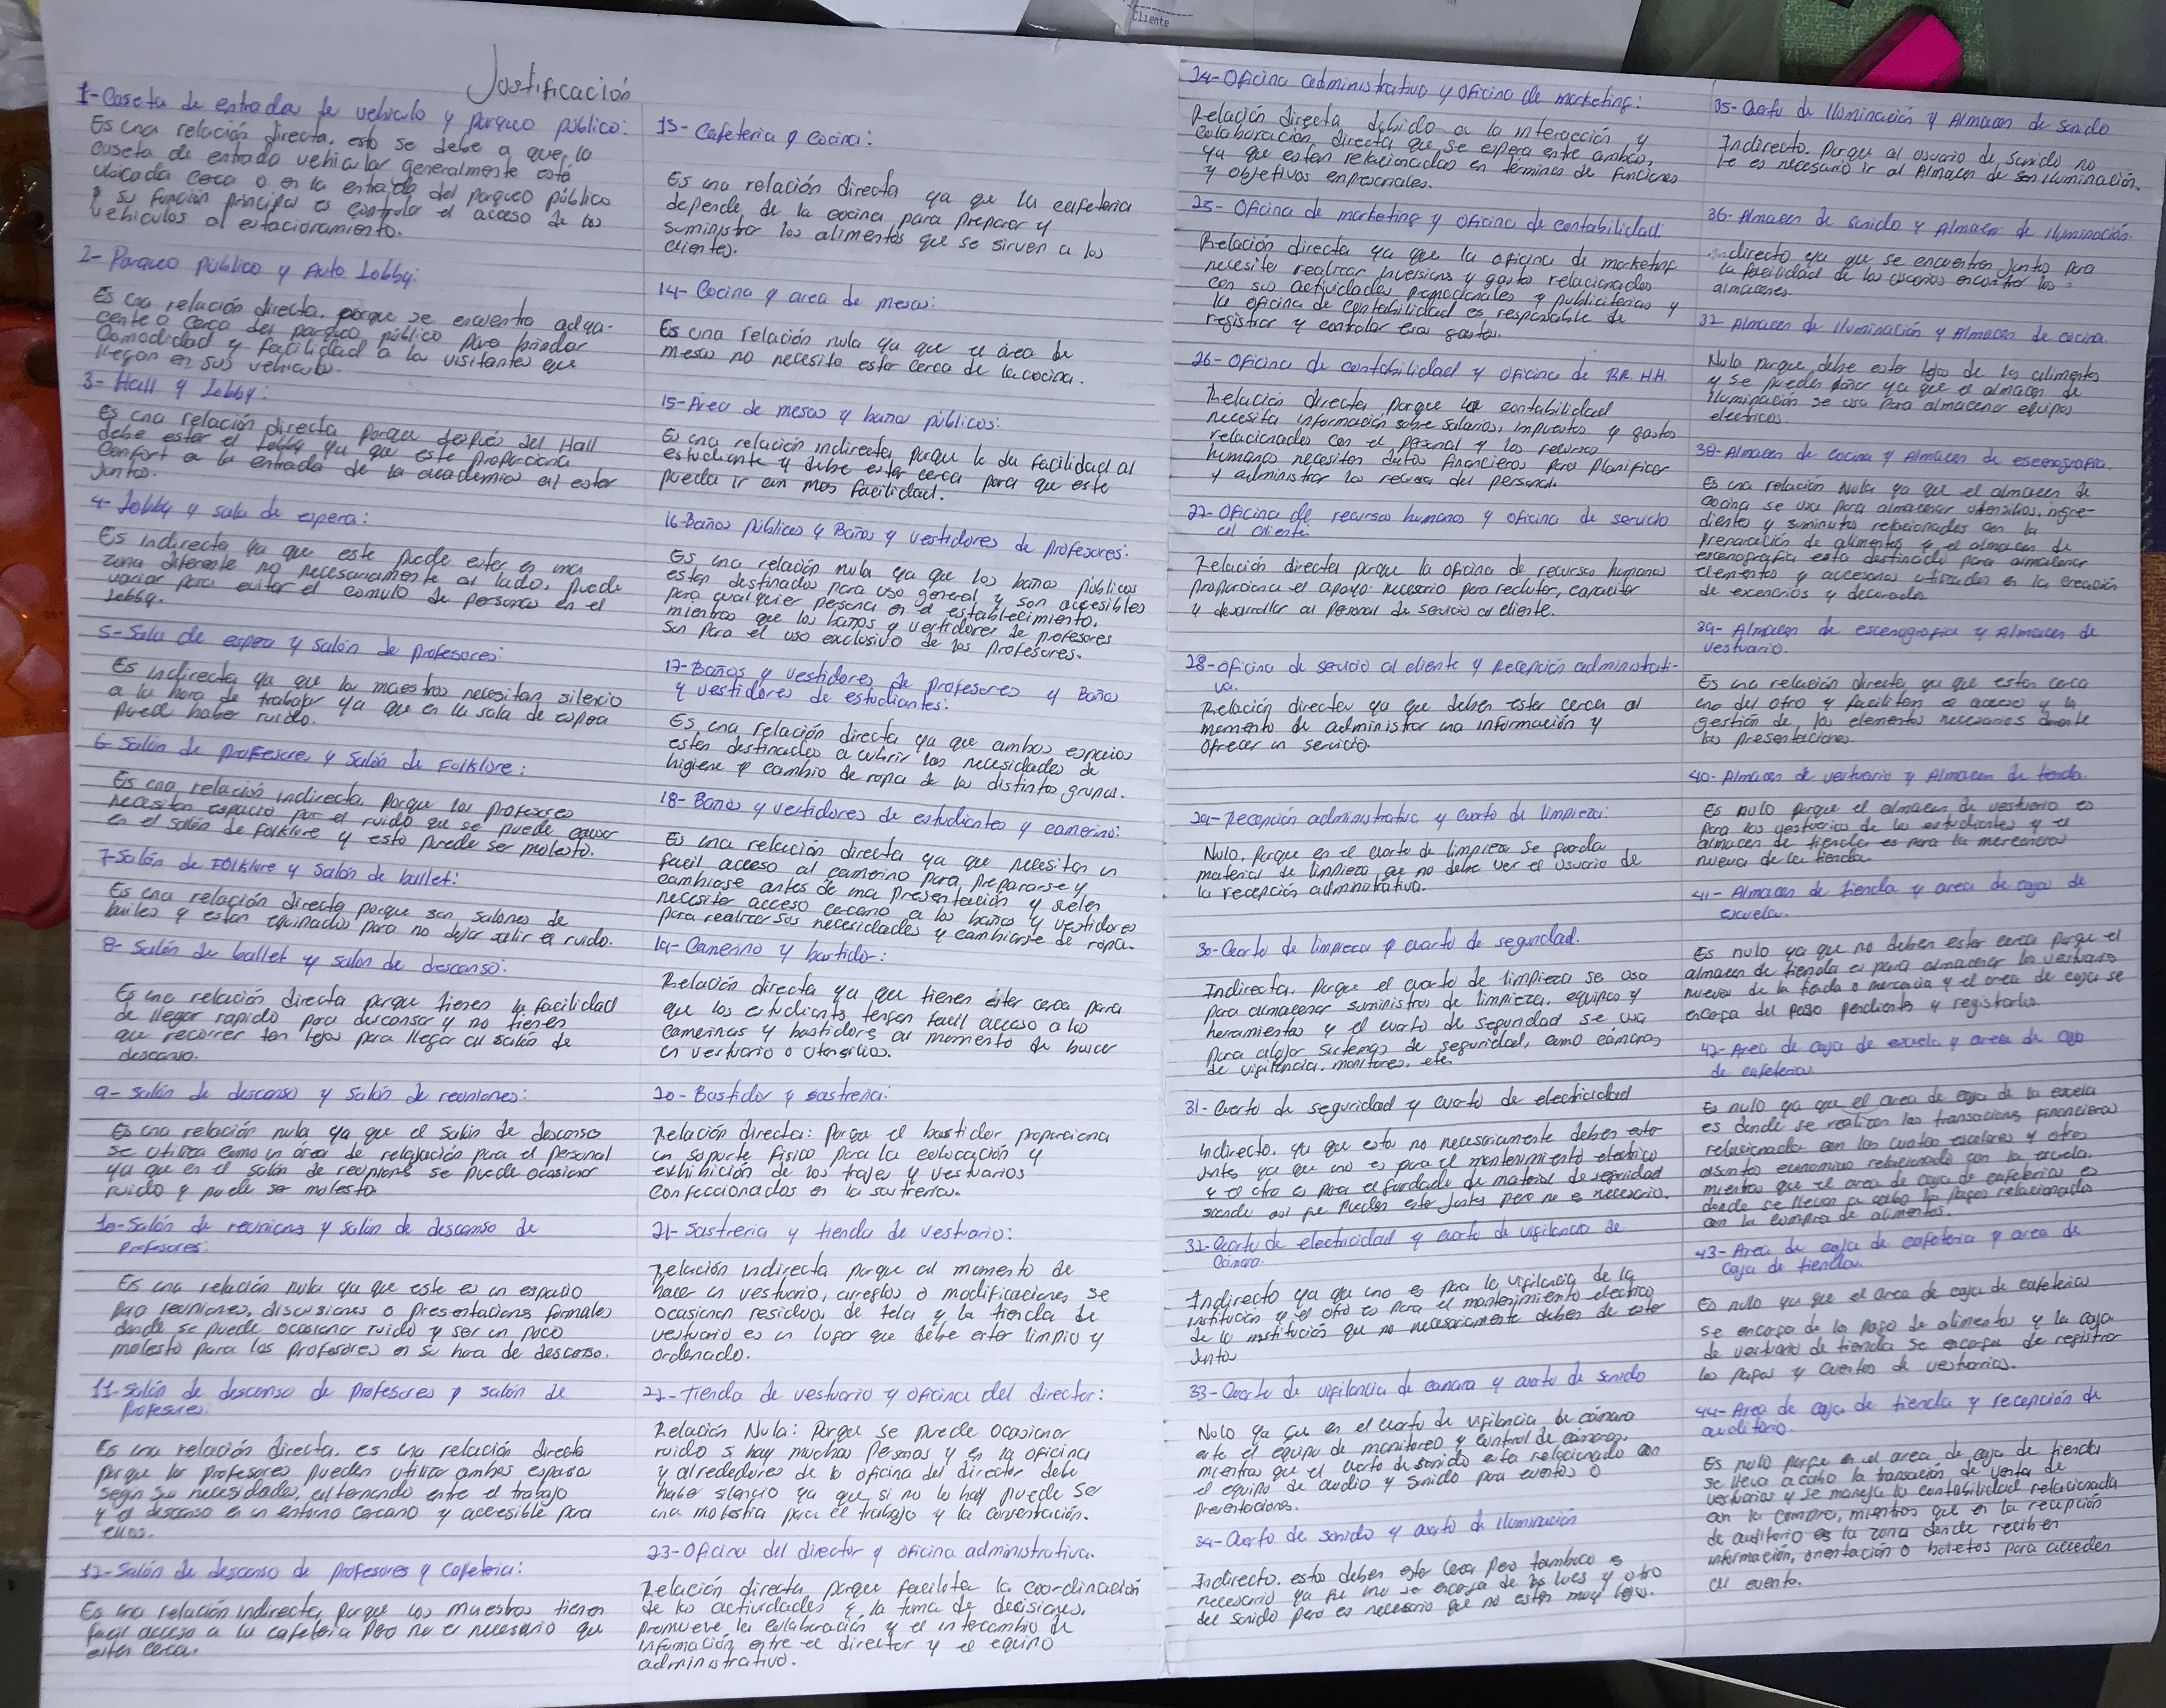 Cliente
Justificación
1-Caseta de entrada de vehiculo y parqueo público:
Es una relación directa, esto se debe a que la
caseta de entrada vehicular generalmente está
ubicada cerca o en la entrada del parqueo público
y su función principal es controlar el acceso de los
vehiculos al estacionamiento.
2- Parqueo público y Auto Lobby:
Es una relación directa. porque se encuentra adya-
cente o cerca del parqueo público para brindar
Comodidad y facilidad a los visitantes que
llegan en sus vehiculo.
3- Hall y Lobby:
Es una relación directa porque después del Hall
debe estar el Lobby ya que este proporciona
Confort a la entrada de la academia al estar
juntos.
4- Lobby y sala de espera:
Es indirecta ya que este puede estar en una
zona diferente no necesariamente al lado, puede
variar para evitar el cumulo de personas en el
Lobby.
5- Sala de espera y Salón de Profesores:
Es indirecta ya que los maestros necesitan silencio
a la hora de trabajar ya que en la sala de espera
puede haber ruido.
6- Salón de profesores y Salón de Folklore:
Es una relación indirecta. Porque los profesores
necesitan espacio por el ruido que se puede causar
en el salón de folklore y esto puede ser molesto.
7-Salón de Folklore y Salón de ballet:
Es una relación directa porque son salones de
bailes y estan equipados para no dejar salir el ruido.
8- Salón de ballet y salón de descanso:
Es una relación directa porque tienen la facilidad
de llegar rapido para descansar y no tienen
que recorrer tan lejos para llegar al salón de
descanso.
9- Salón de descanso y Salón de reuniones:
Es una relación nula ya que el Salón de descanso
se utiliza como un área de relajación para el personal
ya que en el salón de reuniones se puede ocasionar
ruido y puede ser molesto.
10-Salón de reuniones y Salón de descanso de
Profesores:
Es una relación nula ya que este es un espacio
para reuniones, discusiones o presentaciones formales
donde se puede ocasionar ruido y ser un poco
molesto para los profesores en su hora de descanso.
11-Salón de descanso de Profesores y salón de
Profesores:
Es una relación directa. es una relación directa
porque los profesores pueden utilizar ambos espacios
según su necesidades, alternando entre el trabajo
y el descanso en un entorno cercano y accesible para
ellos.
12-Salón de descanso de Profesores y Cafeteria:
Es una relación indirecta, porque los maestros tienen
facil acceso a la cafeteria pero no es necesario que
esten cerca.
13- Cafeteria y Cocina:
Es una relación directa ya que la cafeteria
depende de la cocina para preparar y
suministrar los alimentos que se sirven a los
clientes.
14- Cocina y area de mesas:
Es una relación nula ya que el área de
mesas no necesita estar cerca de la cocina.
15-Área de mesas y baños públicos:
Es una relación indirecta porque le da facilidad al
estudiante y debe estar cerca para que este
pueda ir con mas facilidad.
16-Baños públicos y Baños y vestidores de profesores:
Es una relación nula ya que los baños públicos
estan destinados para uso general y son accesibles
para cualquier persona en el establecimiento.
mientras que los baños y vestidores de profesores
Son para el uso exclusivo de los profesores.
17-Baños y vestidores de profesores y Baños
y vestidores de estudiantes:
Es una relación directa ya que ambos espacios
estan destinados a cubrir las necesidades de
higiene y cambio de ropa de los distintos grupos.
18- Baños y vestidores de estudiantes y camerino:
Es una relación directa ya que necesitan un
facil acceso al camerino para prepararse y
cambiarse antes de una presentación y suelen
necesitar acceso cercano a los baños y vestidores
para realizar sus necesidades y cambiarse de ropa.
19- Camerino y bastidor:
Relación directa ya que tienen estar cerca para
que los estudiantes tengan facil acceso a los
camerinos y bastidores al momento de buscar
un vestuario o utensilios.
20- Bastidor y sastreria:
Relación directa: Porque el bastidor proporciona
un soporte fisico para la colocación y
exhibición de los trajes y vestuarios
confeccionados en la sastreria.
21- Sastreria y tienda de vestuario:
Relación indirecta porque al momento de
hacer un vestuario, arreglos o modificaciones se
ocasionan residuos de tela y la tienda de
vestuario es un lugar que debe estar limpio y
ordenado.
22- tienda de vestuario y oficina del director:
Relación Nula: Porque se puede ocasionar
ruido si hay muchas personas y en la oficina
y alrededores de la oficina del director debe
haber silencio ya que si no lo hay puede ser
una molestia para el trabajo y la conversación.
23-Oficina del director y oficina administrativa.
Relación directa, porque facilita la coordinación
de las actividades y la toma de decisiones.
promueve la colaboración y el intercambio de
información entre el director y el equipo
administrativo.
24-Oficina administrativa y oficina de marketing:
Relación directa debido a la interacción y
colaboración directa que se espera entre ambas,
ya que estan relacionadas en términos de funciones
y objetivos empresariales.
25- Oficina de marketing y oficina de contabilidad
Relación directa ya que la oficina de marketing
necesita realizar inversiones y gastos relacionados
con sus actividades promocionales y publicitarias y
la oficina de contabilidad es responsable de
registrar y controlar esos gastos.
26- Oficina de contabilidad y oficina de RR.HH.
Relación directa porque la contabilidad
necesita información sobre salarios, impuestos y gastos
relacionados con el personal y los recursos
humanos necesitan datos financieros para planificar
y administrar los recursos del personal.
27- Oficina de recursos humanos y oficina de servicio
al cliente.
Relación directa porque la oficina de recursos humanos
proporciona el apoyo necesario para reclutar, capacitar
y desarrollar al personal de servicio al cliente.
28-Oficina de servicio al cliente y Recepción administrati-
va.
Relación directa ya que deben estar cerca al
momento de administrar una información y
ofrecer un servicio.
29-Recepción administrativa y cuarto de limpieza:
Nulo. Porque en el cuarto de limpieza se guarda
material de limpieza que no debe ver el usuario de
la recepción administrativa.
30-Cuarto de limpieza y cuarto de seguridad.
Indirecta. Porque el cuarto de limpieza se usa
para almacenar suministros de limpieza, equipos y
herramientas y el cuarto de seguridad se usa
para alojar sistemas de seguridad, como cámaras
de vigilancia, monitores, etc.
31- Cuarto de seguridad y cuarto de electricidad
Indirecto. ya que esto no necesariamente deben estar
juntos ya que uno es para el mantenimiento electrico
y el otro es para el guardado de material de seguridad
siendo asi que pueden estar juntos pero no es necesario.
32-Cuarto de electricidad y cuarto de vigilancia de
Cámara.
Indirecto ya que uno es para la vigilancia de la
institución y el otro es para el mantenimiento electrico
de la institución que no necesariamente deben de estar
juntos
33- Cuarto de vigilancia de camara y cuarto de sonido
Nulo ya que en el cuarto de vigilancia de cámara
esta el equipo de monitoreo y control de cámaras,
mientras que el cuarto de sonido esta relacionado con
el equipo de audio y sonido para eventos o
presentaciones.
34-Cuarto de sonido y cuarto de iluminación
Indirecto. estos deben estar cerca pero tampoco es
necesario ya que uno se encarga de las luces y otro
del sonido pero es necesario que no esten muy lejos.
35- Cuarto de Iluminación y Almacen de sonido
Indirecto. Porque al usuario de sonido no
le es necesario ir al Almacen de iluminación.
36- Almacen de sonido y Almacen de iluminación.
directo ya que se encuentran juntos para
la facilidad de los usuarios encontrar los
almacenes.
37 Almacen de iluminación y Almacen de cocina.
Nula porque debe estar lejos de los alimentos
y se pueden dañar ya que el almacen de
iluminación se usa para almacenar equipos
electricos.
38-Almacen de cocina y Almacen de escenografia.
Es una relación Nula ya que el almacen de
cocina se usa para almacenar utensilios, ingre-
dientes y suministros relacionados con la
preparación de alimentos y el almacen de
escenografia esta destinado para almacenar
elementos y accesorios utilizados en la creación
de escenarios y decorados.
39- Almacen de escenografia y Almacen de
vestuario.
Es una relación directa ya que estan cerca
uno del otro y facilitan el acceso y la
gestión de los elementos necesarios durante
las presentaciones.
40- Almacen de vestuario y Almacen de tienda.
Es nulo porque el almacen de vestuario es
para los vestuarios de los estudiantes y el
almacen de tienda es para la mercancia
nueva de la tienda.
41- Almacen de tienda y area de caja de
escuela.
Es nulo ya que no deben estar cerca porque el
almacen de tienda es para almacenar los vestuarios
nuevos de la tienda o mercancia y el area de caja se
encarga del pago pendiente y registarlo.
42- Area de caja de escuela y area de caja
de cafeteria
Es nulo ya que el area de caja de la escuela
es donde se realizan las transacions financieras
relacionada con las cuotas escolares y otros
asuntos economicos relacionado con la escuela.
mientras que el area de caja de cafeteria es
donde se llevan a cabo los pagos relacionados
con la compra de alimentos.
43- Area de caja de cafeteria y area de
Caja de tienda.
Es nulo ya que el area de caja de cafeteria
se encarga de los pago de alimentos y la caja
de vestuario de tienda se encarga de registrar
los pagos y cuentas de vestuarios.
44- Area de caja de tienda y recepción de
auditorio.
Es nulo porque en el area de caja de tienda
se lleva a cabo la transación, de venta de
vestuarios y se maneja la contabilidad relacionada
con la compra, mientras que en la recepción
de auditorio es la zona donde reciben
información, orientación o boletos para acceder
al evento.